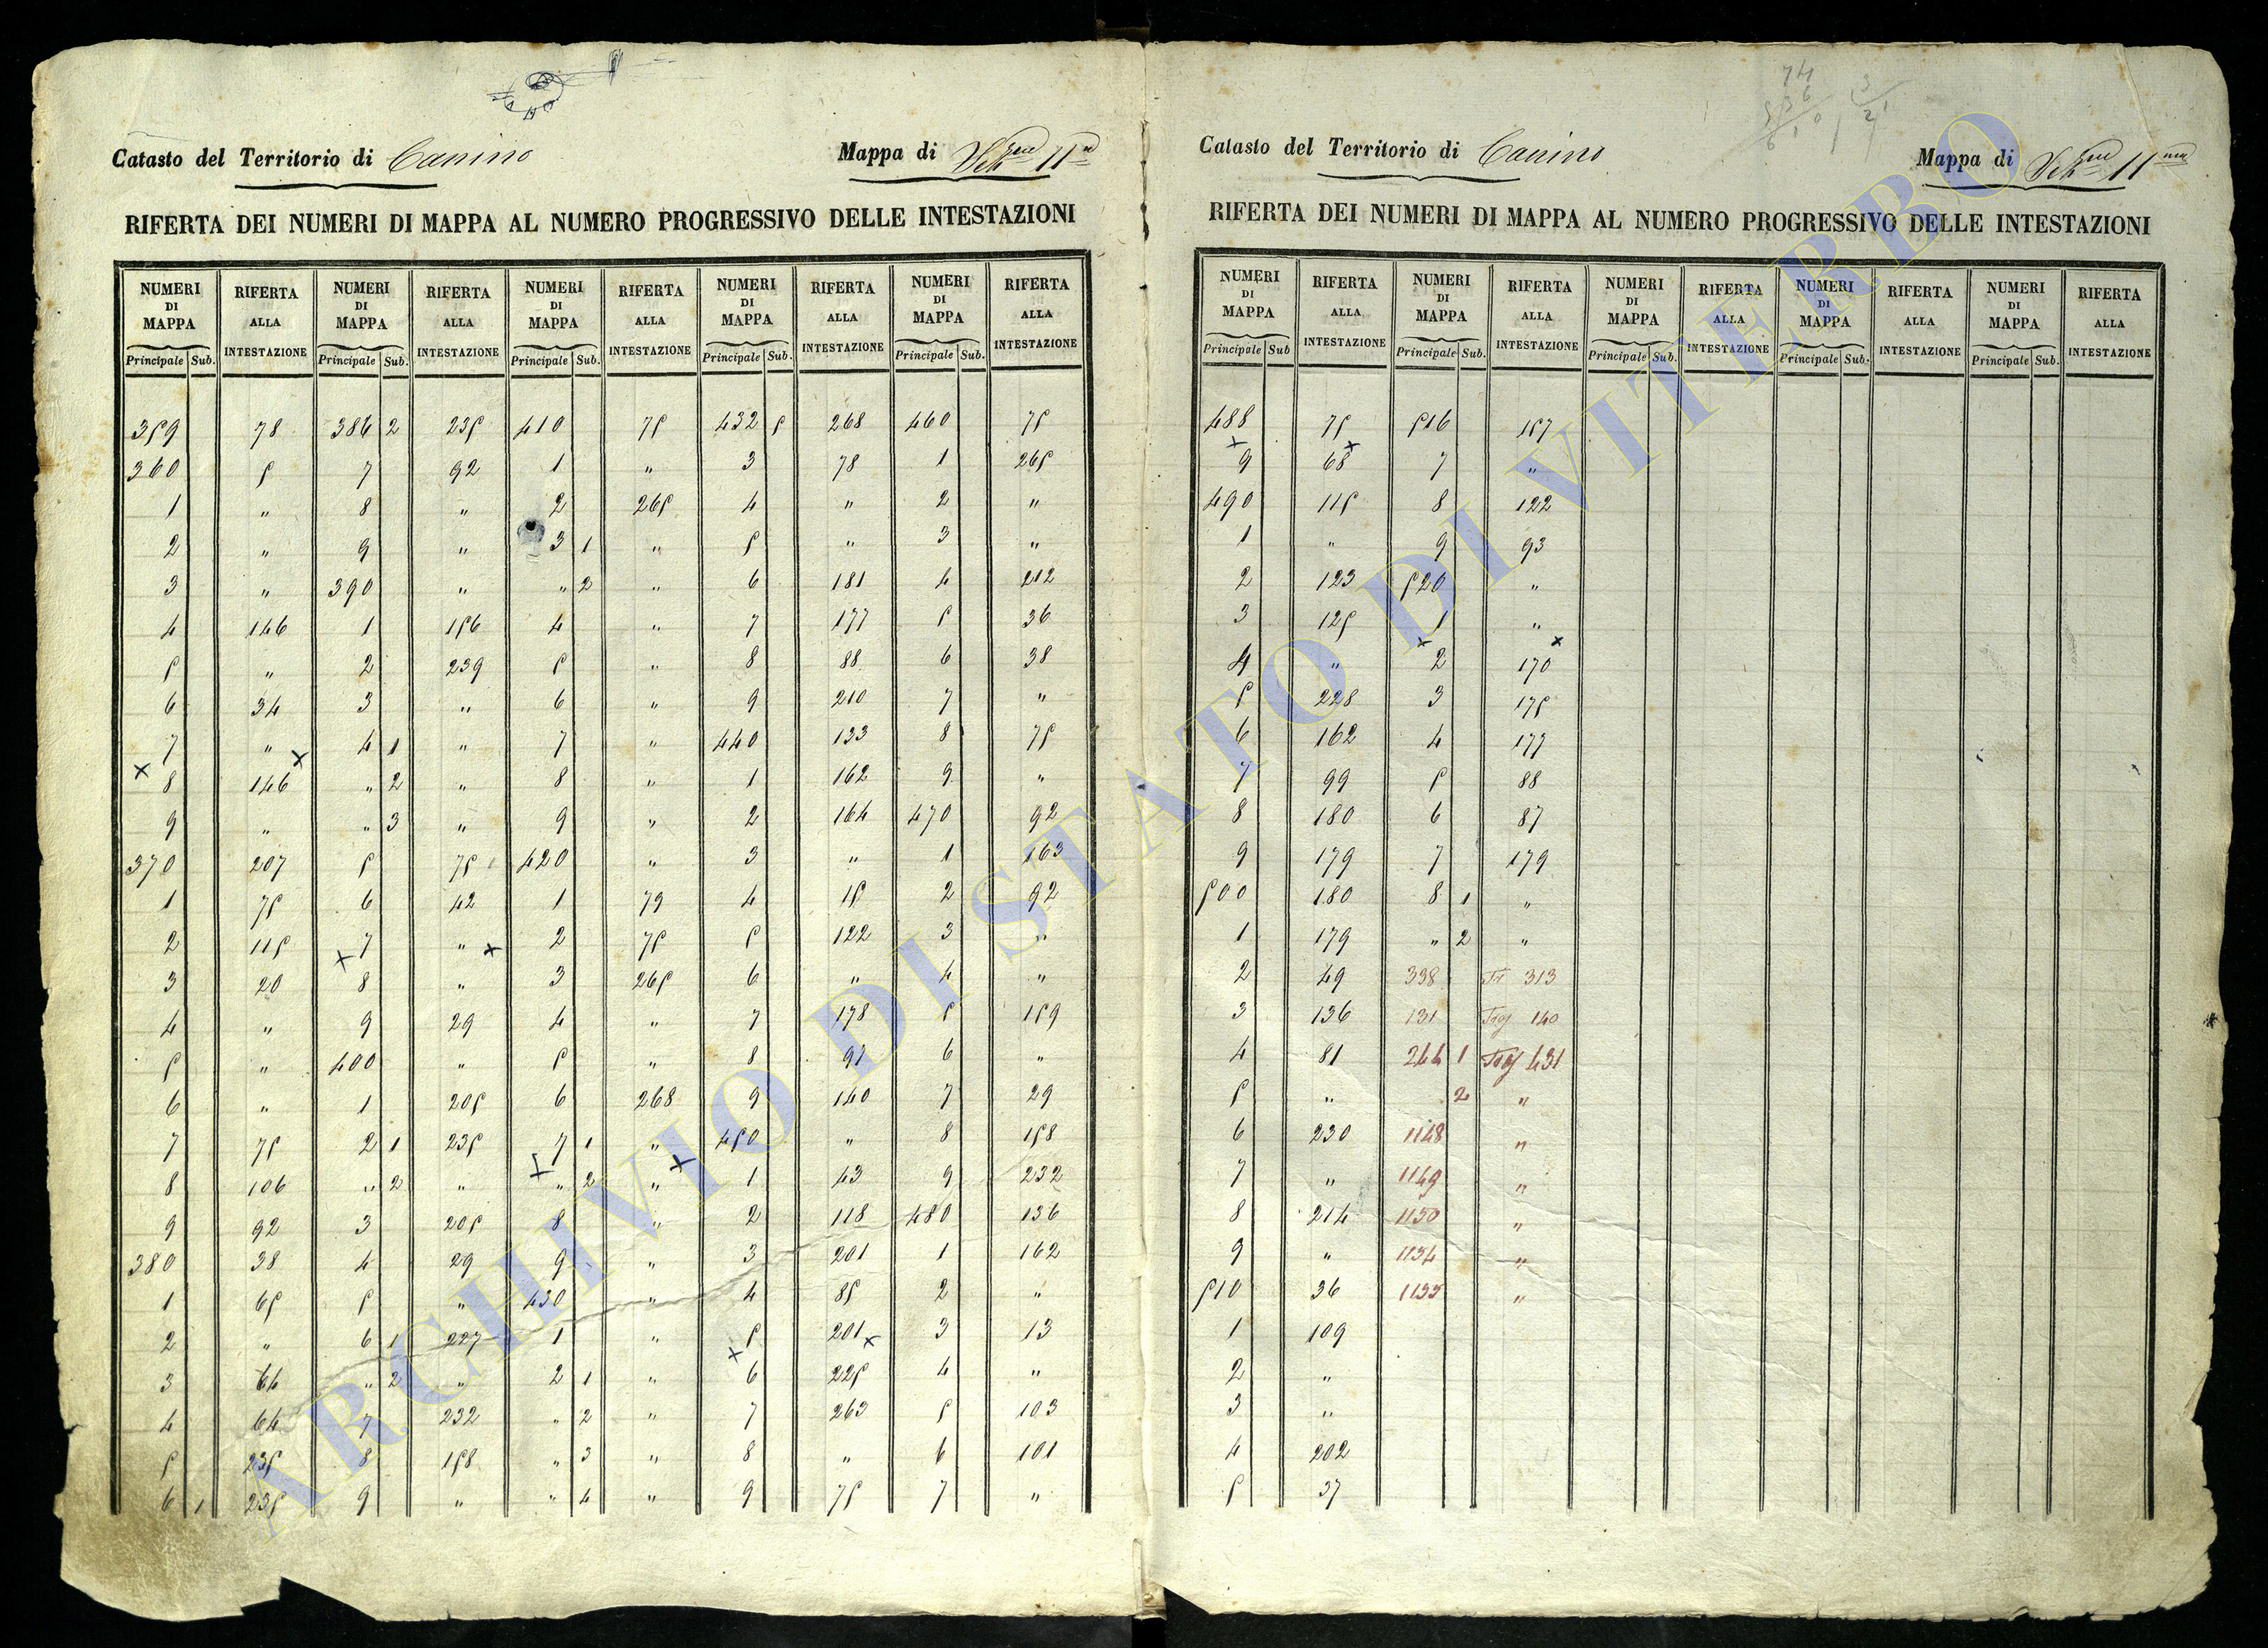 Catasto del Territorio di Canino
Mappa di Sez.ne 11.a
RIFERTA DEI NUMERI DI MAPPA AL NUMERO PROGRESSIVO DELLE INTESTAZIONI
NUMERI DI MAPPA RIFERTA ALLA INTESTAZIONE NUMERI DI MAPPA RIFERTA ALLA INTESTAZIONE NUMERI DI MAPPA RIFERTA ALLA INTESTAZIONE NUMERI DI MAPPA RIFERTA ALLA INTESTAZIONE NUMERI DI MAPPA RIFERTA ALLA INTESTAZIONE
Principale Sub. Principale Sub. Principale Sub. Principale Sub. Principale Sub.
359 78 386 2 235 410 75 432 5 268 460 75
360 5 7 92 1 " 3 78 1 265
1 " 8 " 2 265 4 " 2 "
2 " 9 " 3 1 " 5 " 3 "
3 " 390 " " 2 " 6 181 4 212
4 146 1 156 4 " 7 177 5 36
5 " 2 239 5 " 8 88 6 38
6 34 3 " 6 " 9 210 7 "
7 " 4 1 " 7 " 440 133 8 75
x 8 146 x " 2 " 8 " 1 162 9 "
9 " " 3 " 9 " 2 164 470 92
370 207 5 75 420 " 3 " 1 163
1 75 6 42 1 79 4 15 2 92
2 115 7 " 2 75 5 122 3 "
3 20 x 8 " x 3 265 6 " 4 "
4 " 9 29 4 " 7 178 5 159
5 " 400 " 5 " 8 97 6 "
6 " 1 205 6 268 9 140 7 29
7 75 2 1 235 7 1 " 450 " 8 158
8 106 " 2 " x " 2 " x 1 43 9 232
9 92 3 205 8 " 2 118 480 136
380 38 4 29 9 " 3 201 1 162
1 65 5 " 430 " 4 85 2 "
2 " 6 1 227 1 " 5 201 3 13
3 64 " 2 " 2 1 " x 6 225 x 4 "
4 64 7 232 " 2 " 7 263 5 103
5 235 8 158 " 3 " 8 " 6 101
6 1 235 9 " " 4 " 9 75 7 "
Catasto del Territorio di Canino
Mappa di Sez.ne 11.ma
RIFERTA DEI NUMERI DI MAPPA AL NUMERO PROGRESSIVO DELLE INTESTAZIONI
NUMERI DI MAPPA RIFERTA ALLA INTESTAZIONE NUMERI DI MAPPA RIFERTA ALLA INTESTAZIONE NUMERI DI MAPPA RIFERTA ALLA INTESTAZIONE NUMERI DI MAPPA RIFERTA ALLA INTESTAZIONE NUMERI DI MAPPA RIFERTA ALLA INTESTAZIONE
Principale Sub Principale Sub. Principale Sub. Principale Sub. Principale Sub.
488 75 516 157
x 9 68 x 7 "
490 115 8 122
1 " 9 93
2 123 520 "
3 125 1 "
4 " x 2 170 x
5 228 3 175
6 162 4 177
7 99 5 88
8 180 6 87
9 179 7 179
500 180 8 1 "
1 179 " 2 "
2 49 338 Tr 313
3 136 131 Trasf 140
4 81 244 1 Trasf 431
5 " 2 "
6 230 1148 "
7 " 1149 "
8 214 1150 "
9 " 1134 "
510 36 1135 "
1 109
2 "
3 "
4 202
5 37
ARCHIVIO DI STATO DI VITERBO